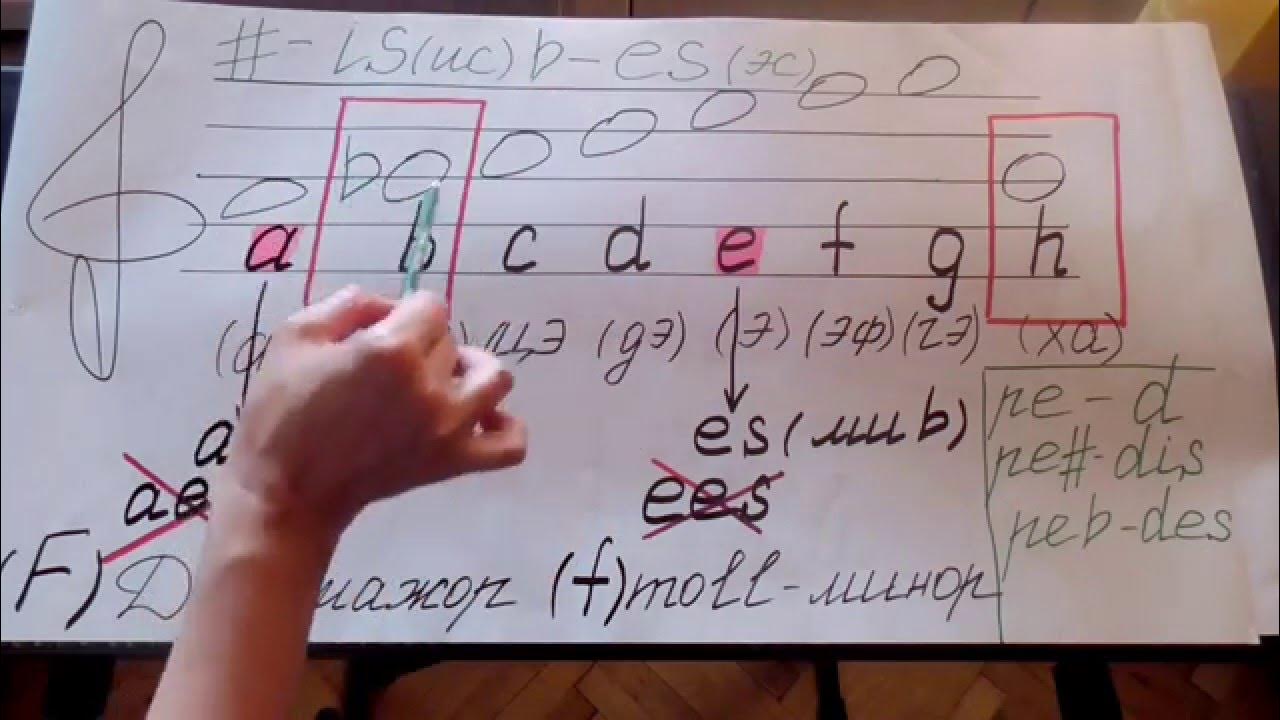 # - is (ис) b - es (эс)
b
a b c d e f g h
цэ (дэ) (э) (эф) (гэ) (ха)
es (ми b)
ees
ре - d
ре# - dis
реb - des
(F) мажор (f) moll - минор